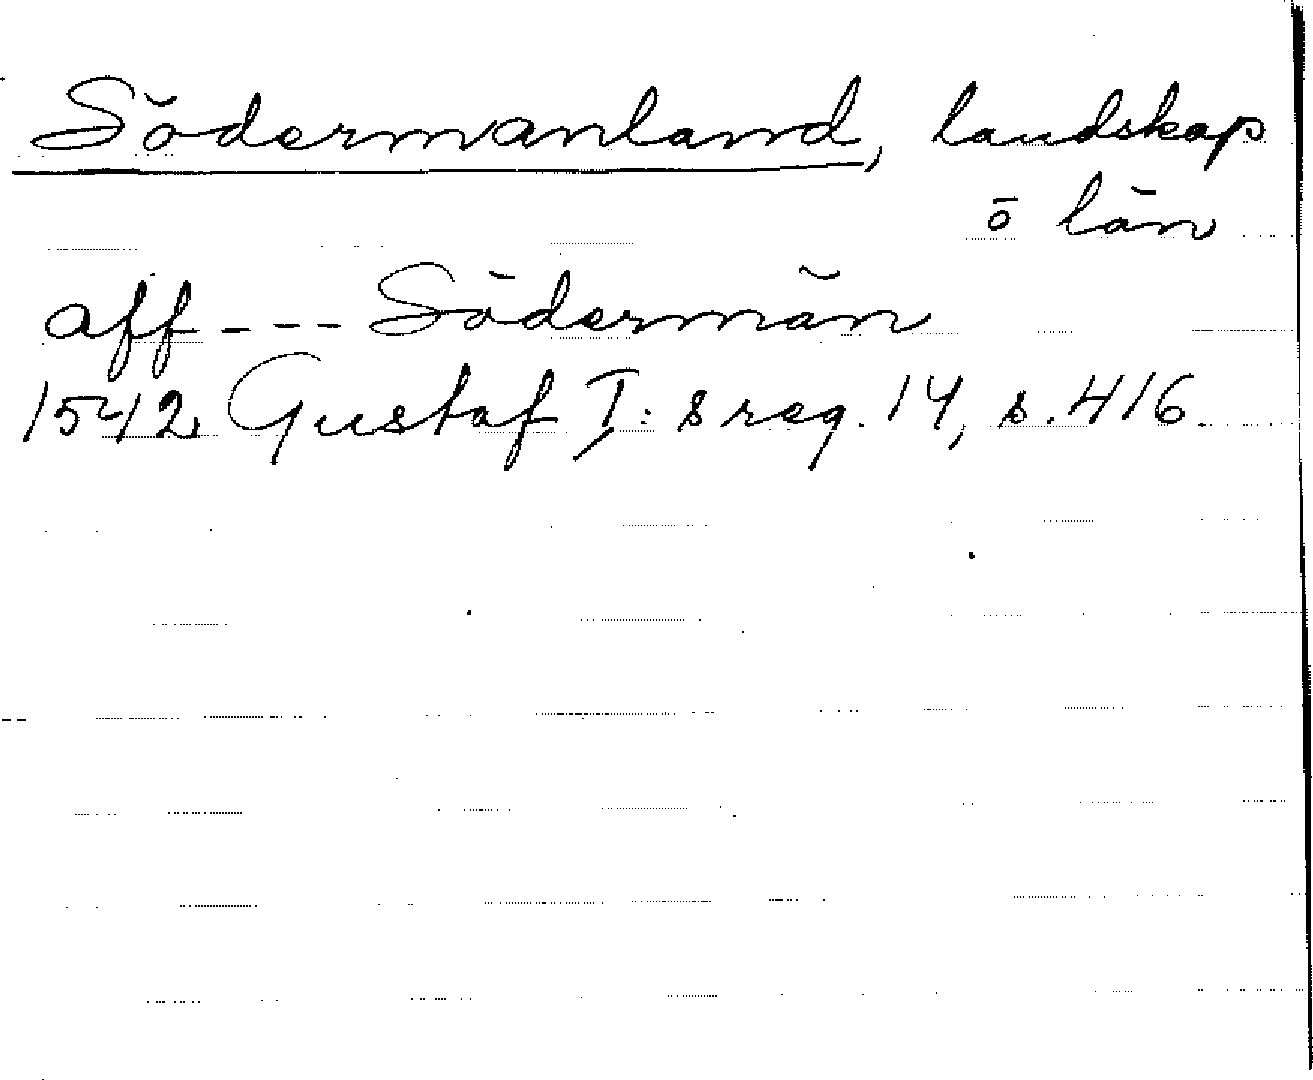 Södermanland, landskap
o län
aff - - - Södermän
1542 Gustaf I:s reg. 14, s. 416.